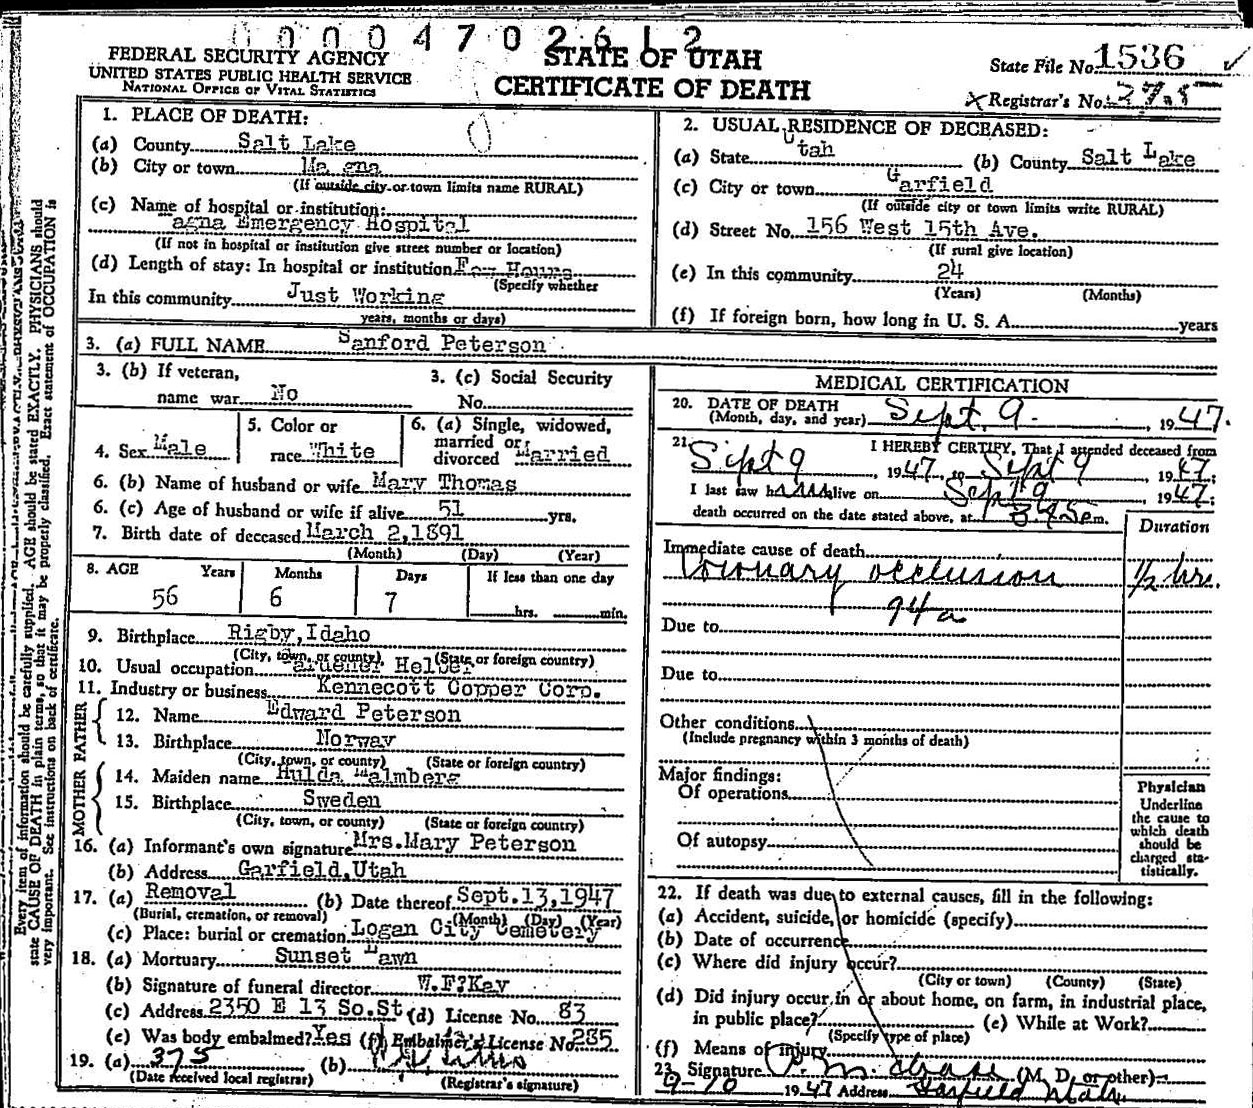 00004702612
FEDERAL SECURITY AGENCY
UNITED STATES PUBLIC HEALTH SERVICE
NATIONAL OFFICE OF VITAL STATISTICS
STATE OF UTAH
CERTIFICATE OF DEATH
State File No. 1536
Registrar's No.
1. PLACE OF DEATH:
(a) County Salt Lake
(b) City or town Ma gna
(If outside city or town limits name RURAL)
(c) Name of hospital or institution:
agna Emergency Hospital
(If not in hospital or institution give street number or location)
(d) Length of stay: In hospital or institution Few Hours
(Specify whether
In this community Just Working
years, months or days)
2. USUAL RESIDENCE OF DECEASED:
(a) State Utah (b) County Salt Lake
(c) City or town Garfield
(If outside city or town limits write RURAL)
(d) Street No. 156 West 15th Ave.
(If rural give location)
(e) In this community 24
(Years) (Months)
(f) If foreign born, how long in U. S. A. years
3. (a) FULL NAME Sanford Peterson
3. (b) If veteran,
name war No
3. (c) Social Security
No.
4. Sex Male
5. Color or
race White
6. (a) Single, widowed,
married or
divorced Married
6. (b) Name of husband or wife Mary Thomas
6. (c) Age of husband or wife if alive 51 yrs.
7. Birth date of deceased March 2,1891
(Month) (Day) (Year)
8. AGE Years Months Days If less than one day
56 6 7 hrs. min.
9. Birthplace Rigby,Idaho
(City, town, or county) (State or foreign country)
10. Usual occupation Helper
11. Industry or business Kennecott Copper Corp.
FATHER
12. Name Edward Peterson
13. Birthplace Norway
(City, town, or county) (State or foreign country)
MOTHER
14. Maiden name Hulda Malmberg
15. Birthplace Sweden
(City, town, or county) (State or foreign country)
16. (a) Informant's own signature Mrs.Mary Peterson
(b) Address Garfield,Utah
17. (a) Removal (b) Date thereof Sept.13,1947
(Burial, cremation, or removal) (Month) (Day) (Year)
(c) Place: burial or cremation Logan City Cemetery
18. (a) Mortuary Sunset Lawn
(b) Signature of funeral director W.F?Kay
(c) Address 2350 E 13 So.St (d) License No. 83
(e) Was body embalmed? Yes (f) Embalmer's License No. 285
19. (a) 375 (b)
(Date received local registrar) (Registrar's signature)
MEDICAL CERTIFICATION
20. DATE OF DEATH
(Month, day, and year) Sept. 9. , 1947.
21. I HEREBY CERTIFY, That I attended deceased from
Sept 9 , 1947, to Sept 9 , 1947;
I last saw h alive on Sept 9 , 1947;
death occurred on the date stated above, at 845 p m.
Duration
Immediate cause of death
Coronary occlusion 1/2 hrs.
94a
Due to
Due to
Other conditions
(Include pregnancy within 3 months of death)
Major findings:
Of operations
Of autopsy
Physician
Underline
the cause to
which death
should be
charged sta-
tistically.
22. If death was due to external causes, fill in the following:
(a) Accident, suicide, or homicide (specify)
(b) Date of occurrence
(c) Where did injury occur?
(City or town) (County) (State)
(d) Did injury occur in or about home, on farm, in industrial place,
in public place? (e) While at Work?
(Specify type of place)
(f) Means of injury
23. Signature (M. D. or other)
9-10 1947 Address Garfield Utah
Every item of information should be carefully supplied. AGE should be stated EXACTLY. PHYSICIANS should
state CAUSE OF DEATH in plain terms, so that it may be properly classified. Exact statement of OCCUPATION is
very important. See instructions on back of certificate.